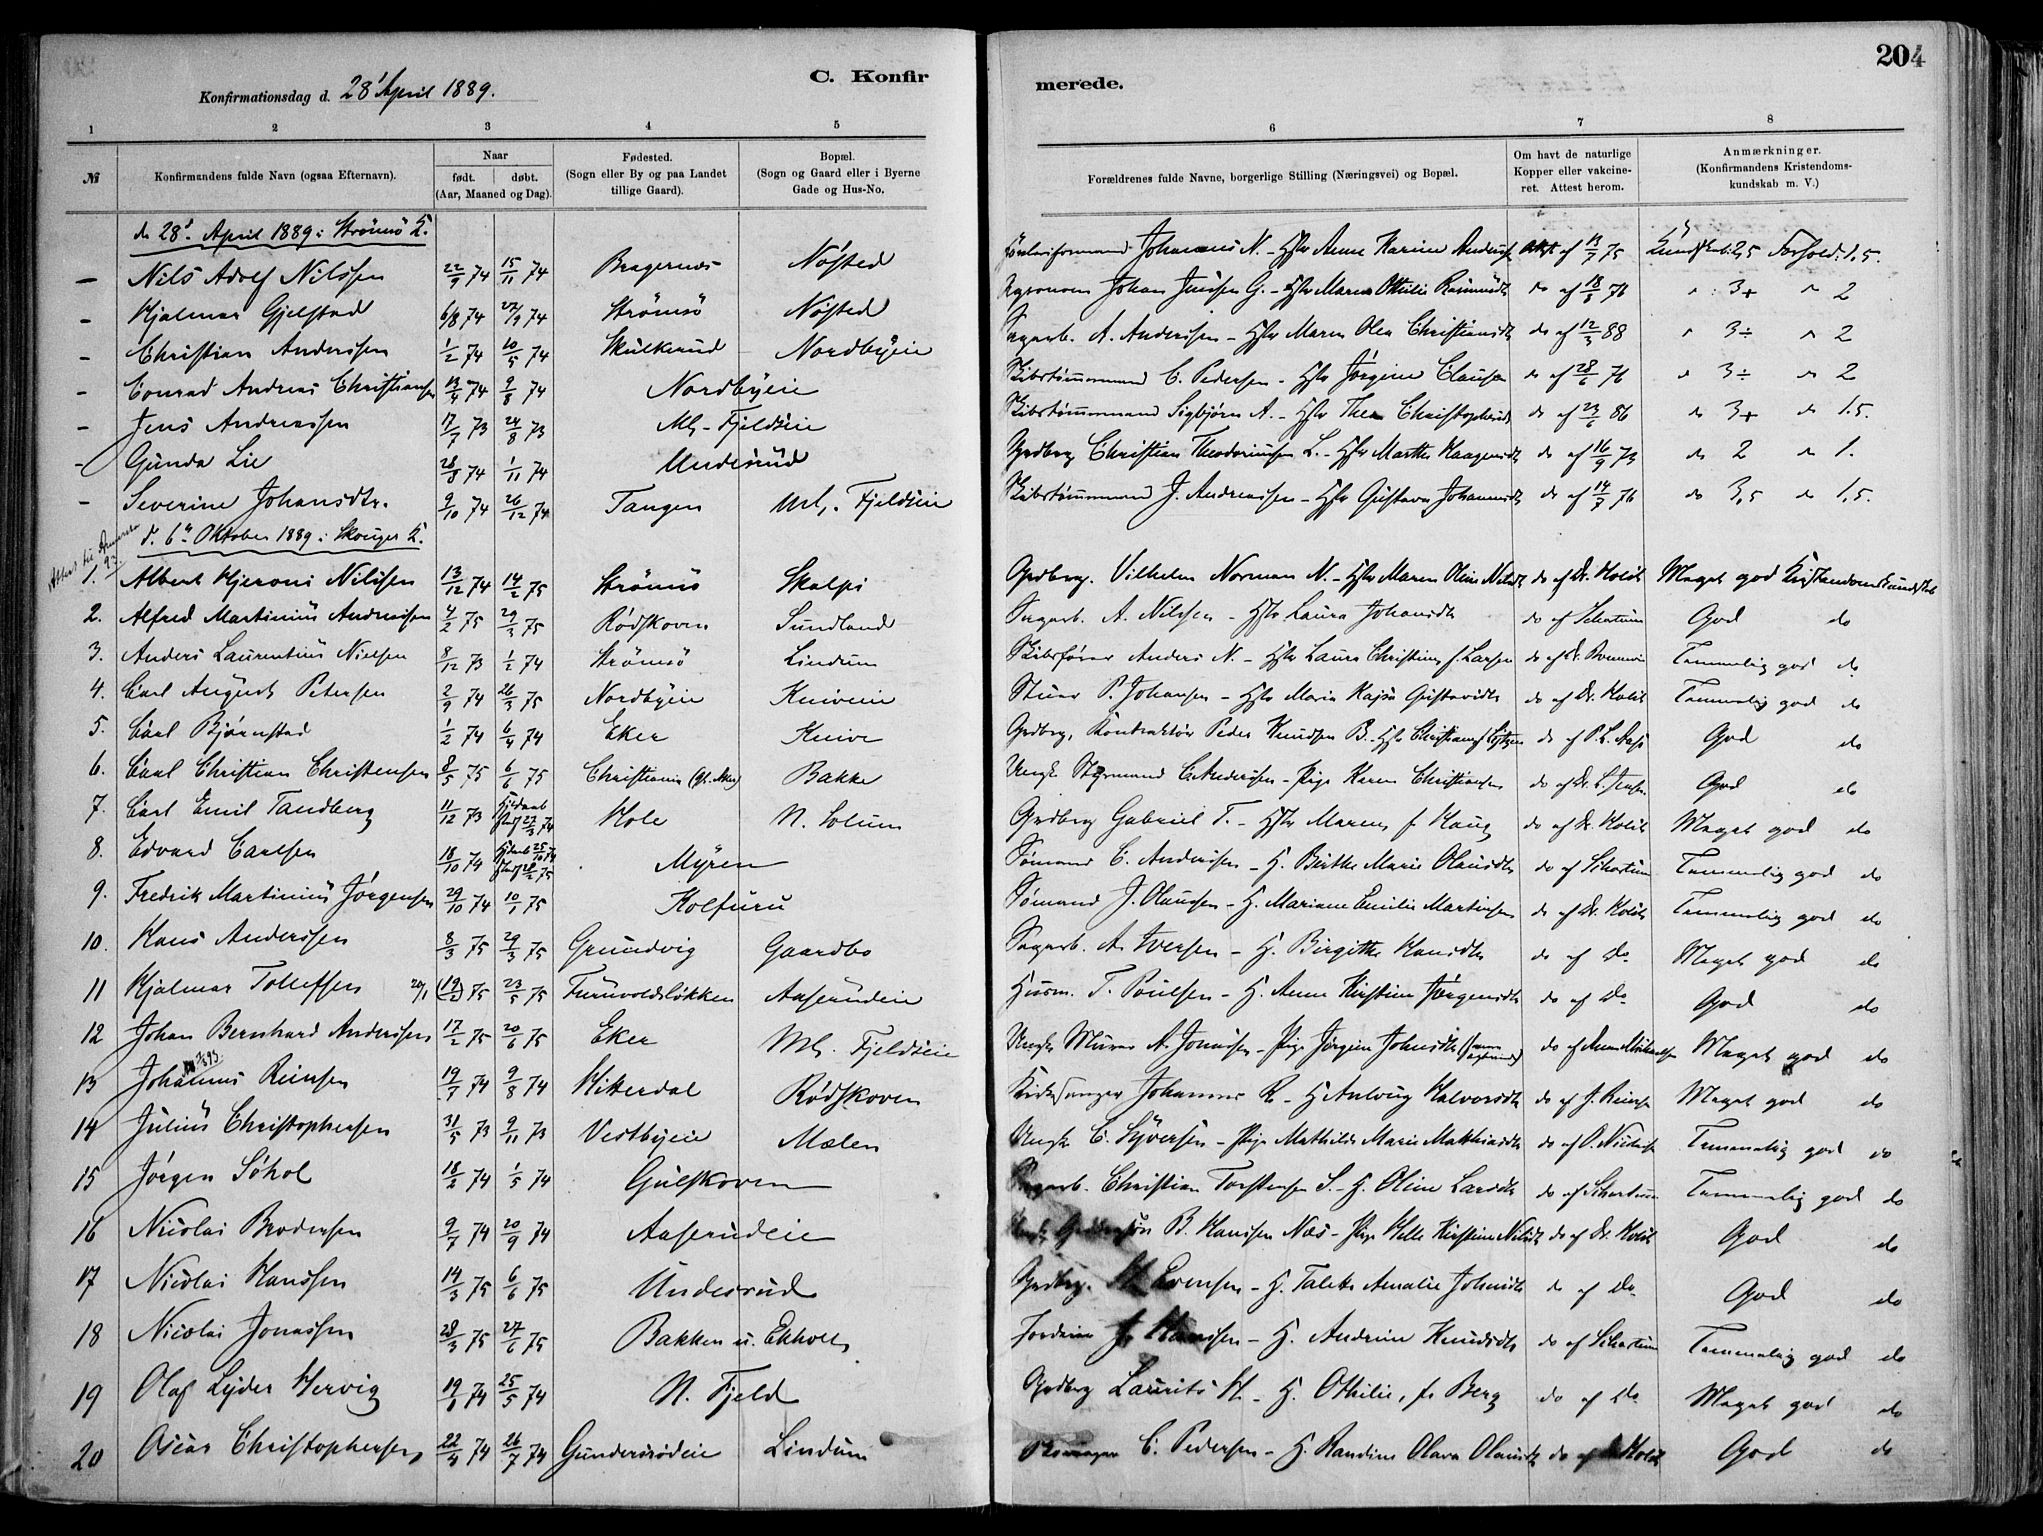 C. Konfirmerede.
204
Konfirmationsdag d. 28' April 1889.
1 2 3 4 5 6 7 8
№ Konfirmandens fulde Navn (ogsaa Efternavn). Naar født. døbt. (Aar, Maaned og Dag). Fødested. (Sogn eller By og paa Landet tillige Gaard). Bopæl. (Sogn og Gaard eller i Byerne Gade og Hus-No. Forældrenes fulde Navne, borgerlige Stilling (Næringsvei) og Bopæl. Om havt de naturlige Kopper eller vakcineret. Attest herom. Anmærkninger. (Konfirmandens Kristendomskundskab m. V.)
d. 28' April 1889 i Strömsö K.
– Nils Adolf Nilssen 22/9 74 15/11 74 Bragernæs Nøsted Johannes N. – Hstr Anne Karine af 13/7 75 2,5 Forhold: 1,5.
– Hjalmar Gjelstad 6/8 74 27/9 74 Strömsö Nøsted Johan Jenssen G. – Hstr Maren Othilie do af 18/8 76 " 3+ " 2
– Christian Anderssen 1/2 74 10/5 74 Skulkerud Nordbyeie Sagarb. A. Anderssen – Hstr Maren Olea Christiansdtr do af 12/3 88 " 3÷ " 2
– Conrad Andreas Christiansen 13/4 74 9/8 74 Nordbyeie Skibstømmermand C. Pedersen – Hstr Jörgine Clausen do af 28/6 76 " 3÷ " 2
– Jens Andreassen 17/7 73 24/8 73 Ml. Fjeldseie Skibstømmermand Sigbjörn A. – Hstr Thea do af 23/6 86 do 3+ do 1.5.
– Gunda Lie 28/8 74 1/11 74 Undesrud Grdbrg Christian L. – Hstr Marthe Haagensdtr do af 16/9 73 do 2 do 1.
– Severine Johansdtr. 9/10 74 26/12 74 Tangen Ml. Fjeldseie Skibstømmermand J. Andreassen – Hstr Gustava Johannsdtr do af 14/7 76 do 3,5 do 1,5.
d. 6te Oktober 1889 i Skouger K.
1. Albert Hjeroni Nilssen 13/12 74 14/2 75 Strömsö Skalpi Grdbrg. Vilhelm Norman N. – Hstr Maren Oline Nilsdtr do af Dr. Holst Meget god Kristendomskundskab
2. Alfred Martinius Andreassen 4/2 75 29/3 75 Rødskoven Sundland Sagarb. A. Nilssen – Hstr Laura Johansdtr do af Schartum God do
3. Anders Laurentius Nielsen 8/12 73 1/2 74 Strömsö Lindum Skibsfører Anders N. – Hstr Laura Christine f. Larsen do af Dr. Temmelig god do
4. Carl August Petersen 2/9 74 26/3 75 Nordbyeie Kniveeie P. Johansen – Hstr Maria Kajsa Gustavsdtr do af Dr. Holst Temmelig god do
5. Carl Bjørnstad 1/2 74 6/4 74 Eker Knive Grdbrg, Kontraktör Peder Knudsen B. – Hstr Christiane f. do af P. L. God do
6. Carl Christian Christensen 8/5 75 6/6 75 Christiania (Gl. Aker) Bakke Ungk. Styrmand C. Anderssen – Pige Karen Christiansen do af Dr. God do
7. Carl Emil Tandberg 11/12 73 74 Hole N. Solum Grdbrg Gabriel T. – Hstr Maren f. Haug do af Dr. Holst Meget god do
8. Edvard Carlsen 18/10 74 25/10 74 75 Myren Sømand C. Anderssen – H. Berthe Marie Olausdtr do af Schartum Temmelig god do
9. Fredrik Martinius Jörgensen 29/10 74 10/1 75 Kolfuru Sømand J. Olaussen – H. Mariane Emilie Martinsen do af Dr. Holst Temmelig god do
10. Hans Anderssen 8/3 75 29/3 75 Grundvig Gaardbo Sagarb. A. Iversen – H. Birgitte Hansdtr do af Do Meget god do
11 Hjalmar Tollefsen 75 23/5 75 Furuvoldsløkken Aaserudeie Husm. T. Poulsen – H. Anne Kirstine Jørgensdtr do af Do God do
12 Johan Bernhard Anderssen 17/2 75 20/6 75 Eker Ml. Fjeldseie Ungk. Murer A. Jonassen – Pige Jörgine Johnsdtr do af Meget god do
13 Johannes Reinsen 19/7 74 9/8 74 Hitterdal Rødskoven Kirkesanger Johannes R. – H. Halvorsdtr do af J. Reinsen Meget god do
14 Julius Christophersen 31/5 73 9/11 73 Vestbyeie Mælen Ungk. C. Syversen – Pige Mathilde Marie Mathiasdtr do af O. Temmelig god do
15 Jörgen Söhol 18/2 74 1/5 74 Gulskoven Sagarb. Christian Torstensen S. – H. Oline Larsdtr do af Schartum Temmelig god do
16 Nicolai Brodersen 9/7 74 20/9 74 Aaserudeie B. Hanssen Næs – Pige Helle Kirstine Nilsdtr do af Dr. Holst God do
17 Nicolai Hanssen 14/3 75 6/6 75 Undesrud Grdbrg. H. Evensen – H. Talette Amalie Johnsdtr do af Do God do
18 Nicolai Jonassen 28/3 75 27/6 75 Bakken u. Ekholt Hanssen – H. Andrine Knudsdtr do af Schartum Temmelig god do
19 Olaf Lyder Hervig 19/1 74 25/5 74 N. Fjeld Grdbrg Laurits H. – H. Othilie, f. Berg do af Do Meget god do
20 Oscar Christophersen 22/4 74 26/7 74 Gundersrødeie Lindum C. Pedersen – H. Randine Olava Olausdtr do af Holst God do